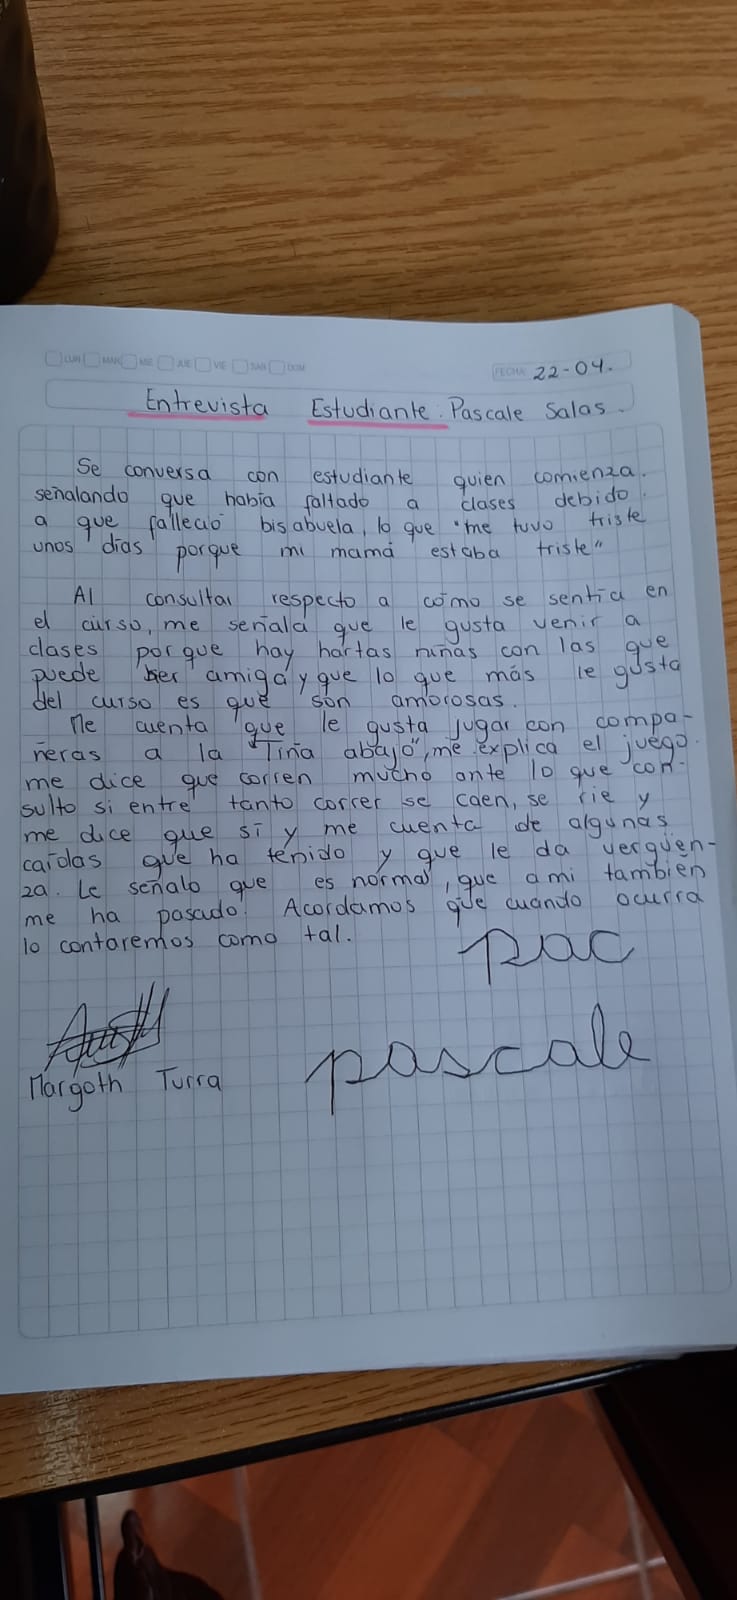 LUN MAR MIE JUE VIE SAB DOM
FECHA: 22-04.
Entrevista Estudiante: Pascale Salas.
Se conversa con estudiante quien comienza.
señalando que había faltado a clases debido
a que falleció bisabuela, lo que "me tuvo triste
unos días porque mi mamá estaba triste"
Al consultar respecto a cómo se sentía en
el curso, me señala que le gusta venir a
clases porque hay hartas niñas con las que
puede ser amiga y que lo que más le gusta
del curso es que son amorosas.
Me cuenta que le gusta jugar con compa-
ñeras a la "Tiña abajo", me explica el juego.
me dice que corren mucho ante lo que con-
sulto si entre tanto correr se caen, se rie y
me dice que sí y me cuenta de algunas
caídas que ha tenido y que le da vergüen-
za. Le señalo que es normal, que a mi también
me ha pasado. Acordamos que cuando ocurra
lo contaremos como tal.
pac
pascale
Margoth Turra